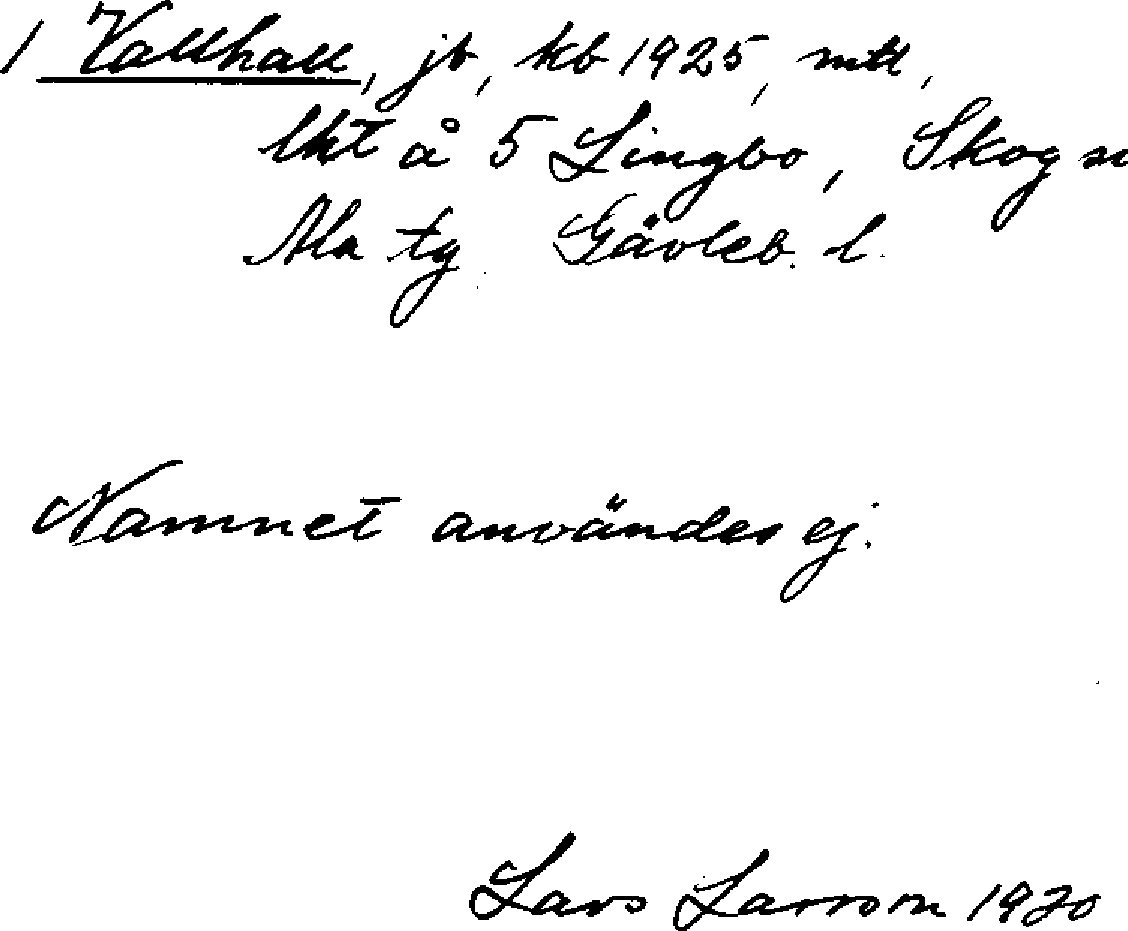 1 Vallhall, jb, kb 1925, mtl,
lht å 5 Lingbo, Skog sn
Ala tg Gävleb. l.
Namnet användes ej.
Lars Larsson 1970